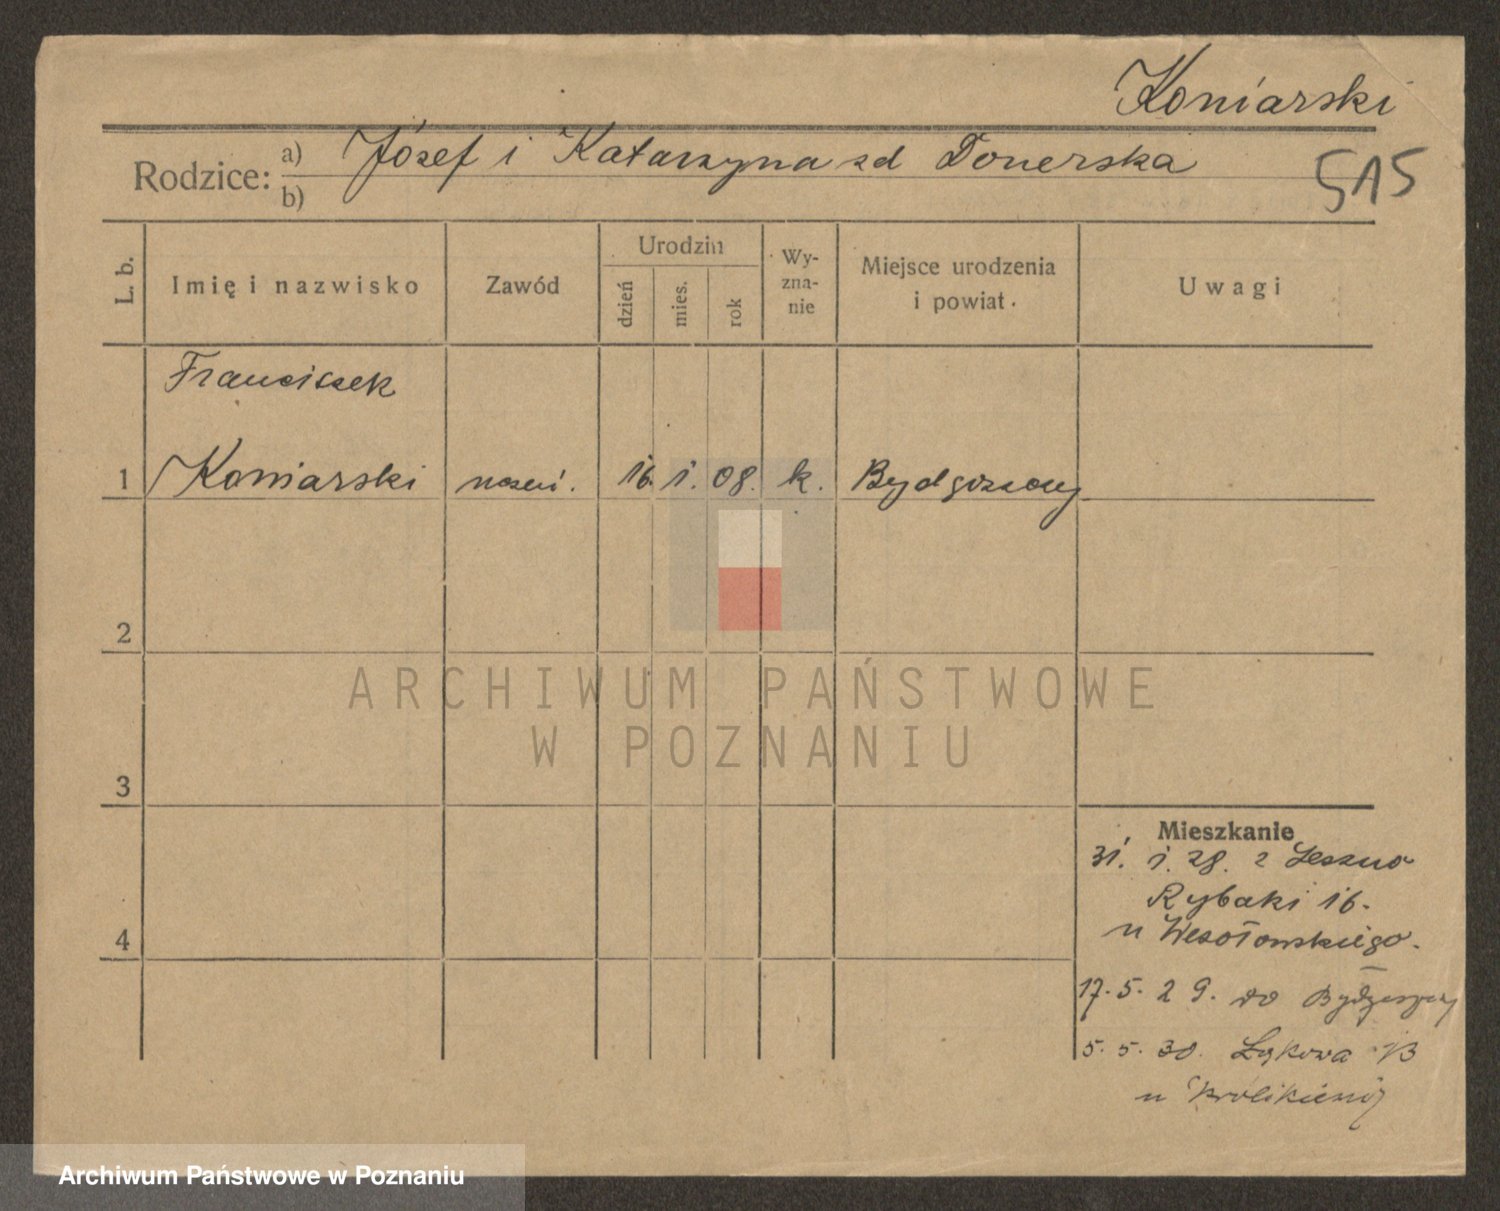 Koniarski
Rodzice: a) Józef i Katarzyna zd Donerska
b)
515
L. b.
Imię i nazwisko
Zawód
Urodzin
dzień
mies.
rok
Wy-
zna-
nie
Miejsce urodzenia
i powiat.
Uwagi
Franciszek
1 Koniarski uczeń. 16. 1. 08. k. Bydgoszczy
2
3
4
Mieszkanie
31. 1. 28. z Leszno
Rybaki 16.
u Wesołowskiego.
17. 5. 29. do Bydgoszczy
5. 5. 30. Łąkowa
u
ARCHIWUM PAŃSTWOWE
W POZNANIU
Archiwum Państwowe w Poznaniu